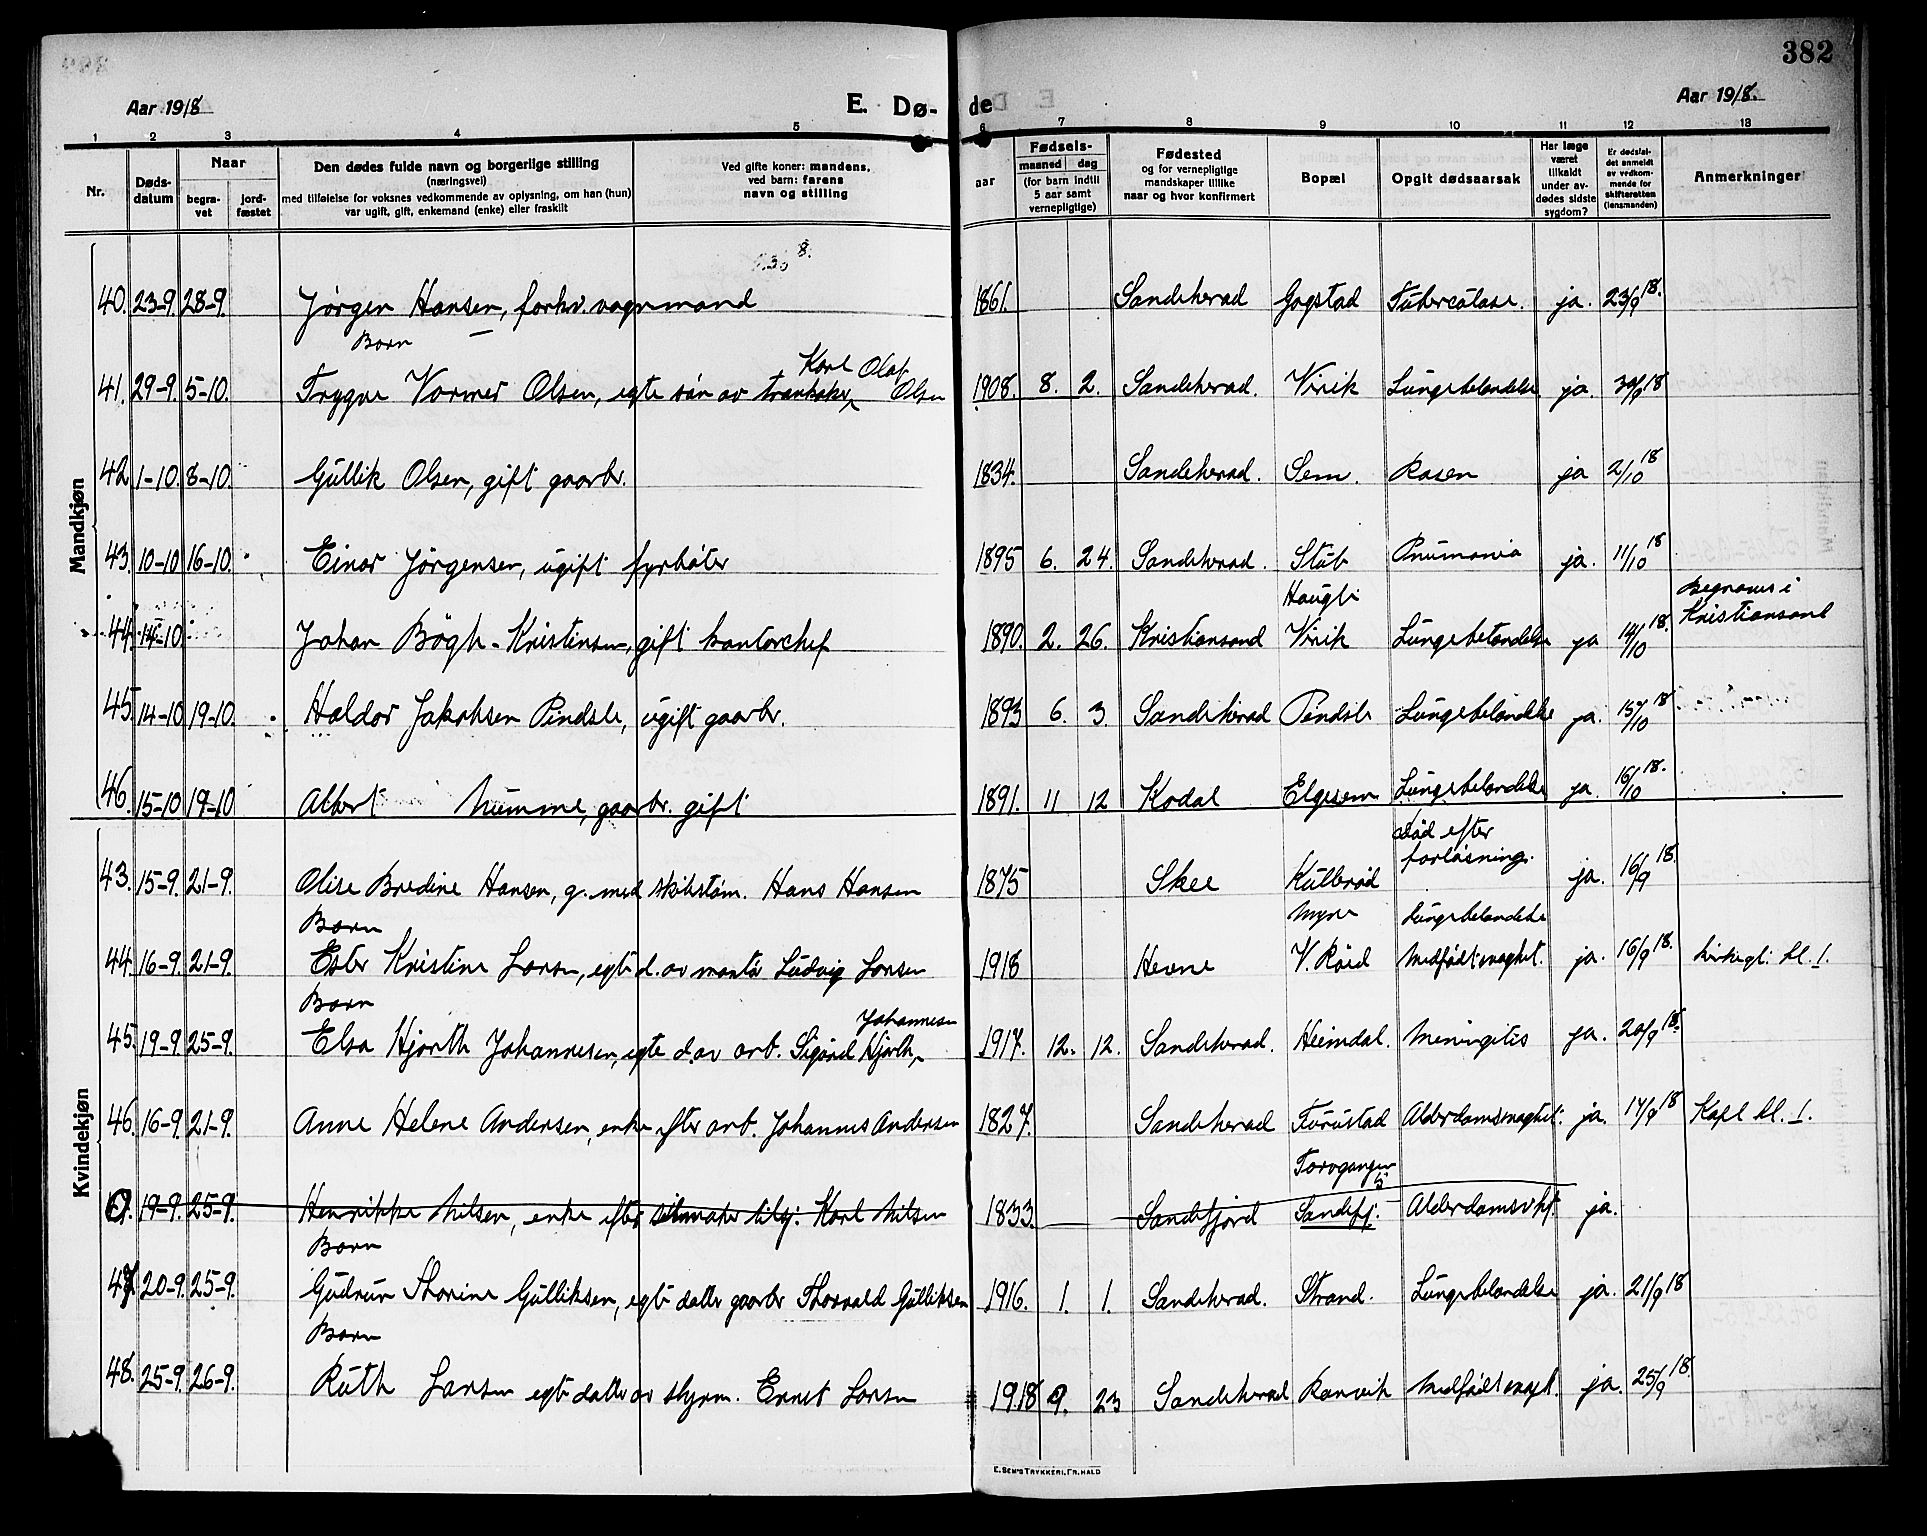 382
Aar 1918
E. Dø-
de
Aar 1918.
1 2 3 4 5 6 7 8 9 10 11 12 13
Nr. Døds-datum Naar begra-vet jord-fæstet Den dødes fulde navn og borgerlige stilling (næringsvei) med tilføielse for voksnes vedkommende av oplysning, om han (hun) var ugift, gift, enkemand (enke) eller fraskilt Ved gifte koner: mandens, ved barn: farens navn og stilling aar Fødsels- maaned dag (for barn indtil 5 aar samt vernepligtige) Fødested og for vernepligtige mandskaper tillike naar og hvor konfirmert Bopæl Opgit dødsaarsak Har læge været tilkaldt under av-dødes sidste sygdom? Er dødsfal-det anmeldt av vedkom-mende for skifteretten (lensmanden) Anmerkninger
Mandkjøn
40. 23-9. 28-9. Jørgen Hansen, forhv. vognmand 1861. Sandeherad Gogstad Tuberculose. ja. 23/9 18.
Barn
Karl Olaf
41. 29-9. 5-10. Trygve Vormer Olsen, egte søn av trankoker Olsen 1908. 8. 2. Sandeherad. Virik Lungebetændelse ja. 30/9 18
42. 1-10. 8-10. Gullik Olsen, gift gaarbr. 1834. Sandeherad. Sem. Rosen ja 2/10 18
43. 10-10 16-10. Einar Jørgensen, ugift fyrbøter 1895 6. 24. Sandeherad. Stub Pnumonia ja. 11/10 18
Haugli
Begraves i
44. 14-10 Johan Bögh-Kristensen, gift kontorchef 1890. 2. 26. Kristiansand Virik Lungebetændelse ja 14/10 18. Kristiansand
45. 14-10 19-10. Haldor Jakobsen Pindsle, ugift gaarbr. 1893 6. 3. Sandeherad Pindsle Lungebetændelse ja. 15/10 18
46. 15-10 19-10 Albert Numme, gaarbr. gift 1891. 11 12 Kodal Elgesem Lungebetændelse ja. 16/10 18.
Kvindekjøn
død efter
forløsning.
43. 15-9. 21-9. Olise Bredine Hansen, g. med skibstøm. Hans Hansen 1875 Skee Kullerød ja. 16/9 18.
Barn
Myra Lungebetændelse
44. 16-9. 21-9. Ester Kristine Larsen, egte d. av montør Ludvig Larsen 1918 Hevne V. Röd Medfødt svaghet. ja. 16/9 18. kl. I.
Barn
Johannesen
45. 19-9. 25-9. Elsa Hjorth Johannesen, egte d. av arb. Sigurd Hjorth 1917. 12. 12. Sandeherad. Heimdal. Meningitis ja. 20/9 18.
46. 16-9. 21-9. Anne Helene Andersen, enke efter arb. Johannes Andersen 1827. Sandeherad Furustad Alderdomssvaghet. ja. 17/9 18 Kapl kl. I.
Torvgangen
5
19-9. 25-9. Henrikke Nilsen, enke efter Karl Nilsen 1833. Sandefjord Sandefj. ja.
Barn
47. 20-9. 25-9. Gudrun Thorine Gulliksen, egte datter gaarbr Thorvald Gulliksen 1916. 1. 1. Sandeherad. Strand. Lungebetændelse ja. 21/9 18
Barn
48. 25-9. 26-9. Ruth Larsen egte datter av styrm. Ernst Larsen 1918 9. 23 Sandeherad Ranvik Medfødt svagh. ja. 25/9 18.
E. SEM'S TRYKKERI, FR. HALD